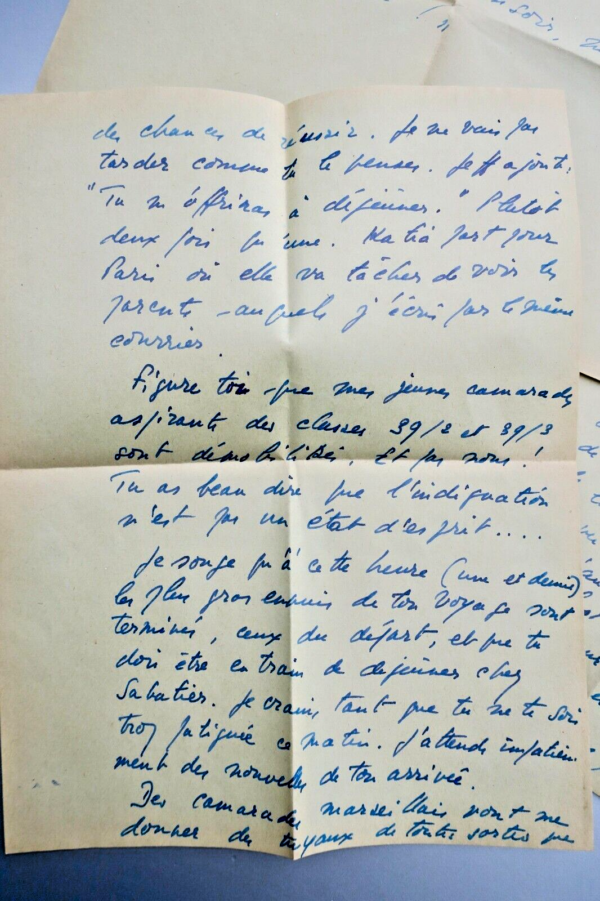 des chances de réussir. Je ne vais pas
tarder comme tu le penses. Jeff ajoute:
"Tu m'offriras à déjeuner." Plutôt
deux fois qu'une. Katia part pour
Paris où elle va tâcher de voir les
parents - auxquels j'écris par le même
courrier.
Figure toi que mes jeunes camarades
aspirants des classes 39/2 et 39/3
sont démobilisés. Et pas nous!
Tu as beau dire que l'indignation
n'est pas un état d'esprit....
Je songe qu'à cette heure (une et demie)
les plus gros ennuis de ton voyage sont
terminés, ceux du départ, et que tu
dois être en train de déjeuner chez
Sabatier. Je crains tant que tu ne te sois
trop fatiguée ce matin. J'attends impatiem-
ment des nouvelles de ton arrivée.
Des camarades marseillais vont me
donner des tuyaux de toutes sortes que